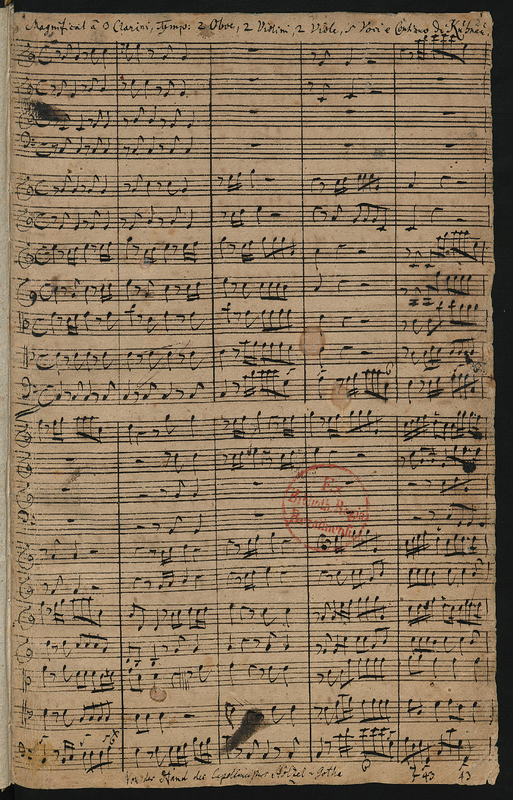 Magnificat à 3 Clarini, Tymp: 2 Oboe, 2 Violini, 2 Viole, 5 Voci e Continuo di Kuhnau.
Ex
Biblioth. Regia
Berolinensi
Von der Hand des Capellmeisters Stölzel - Gotha